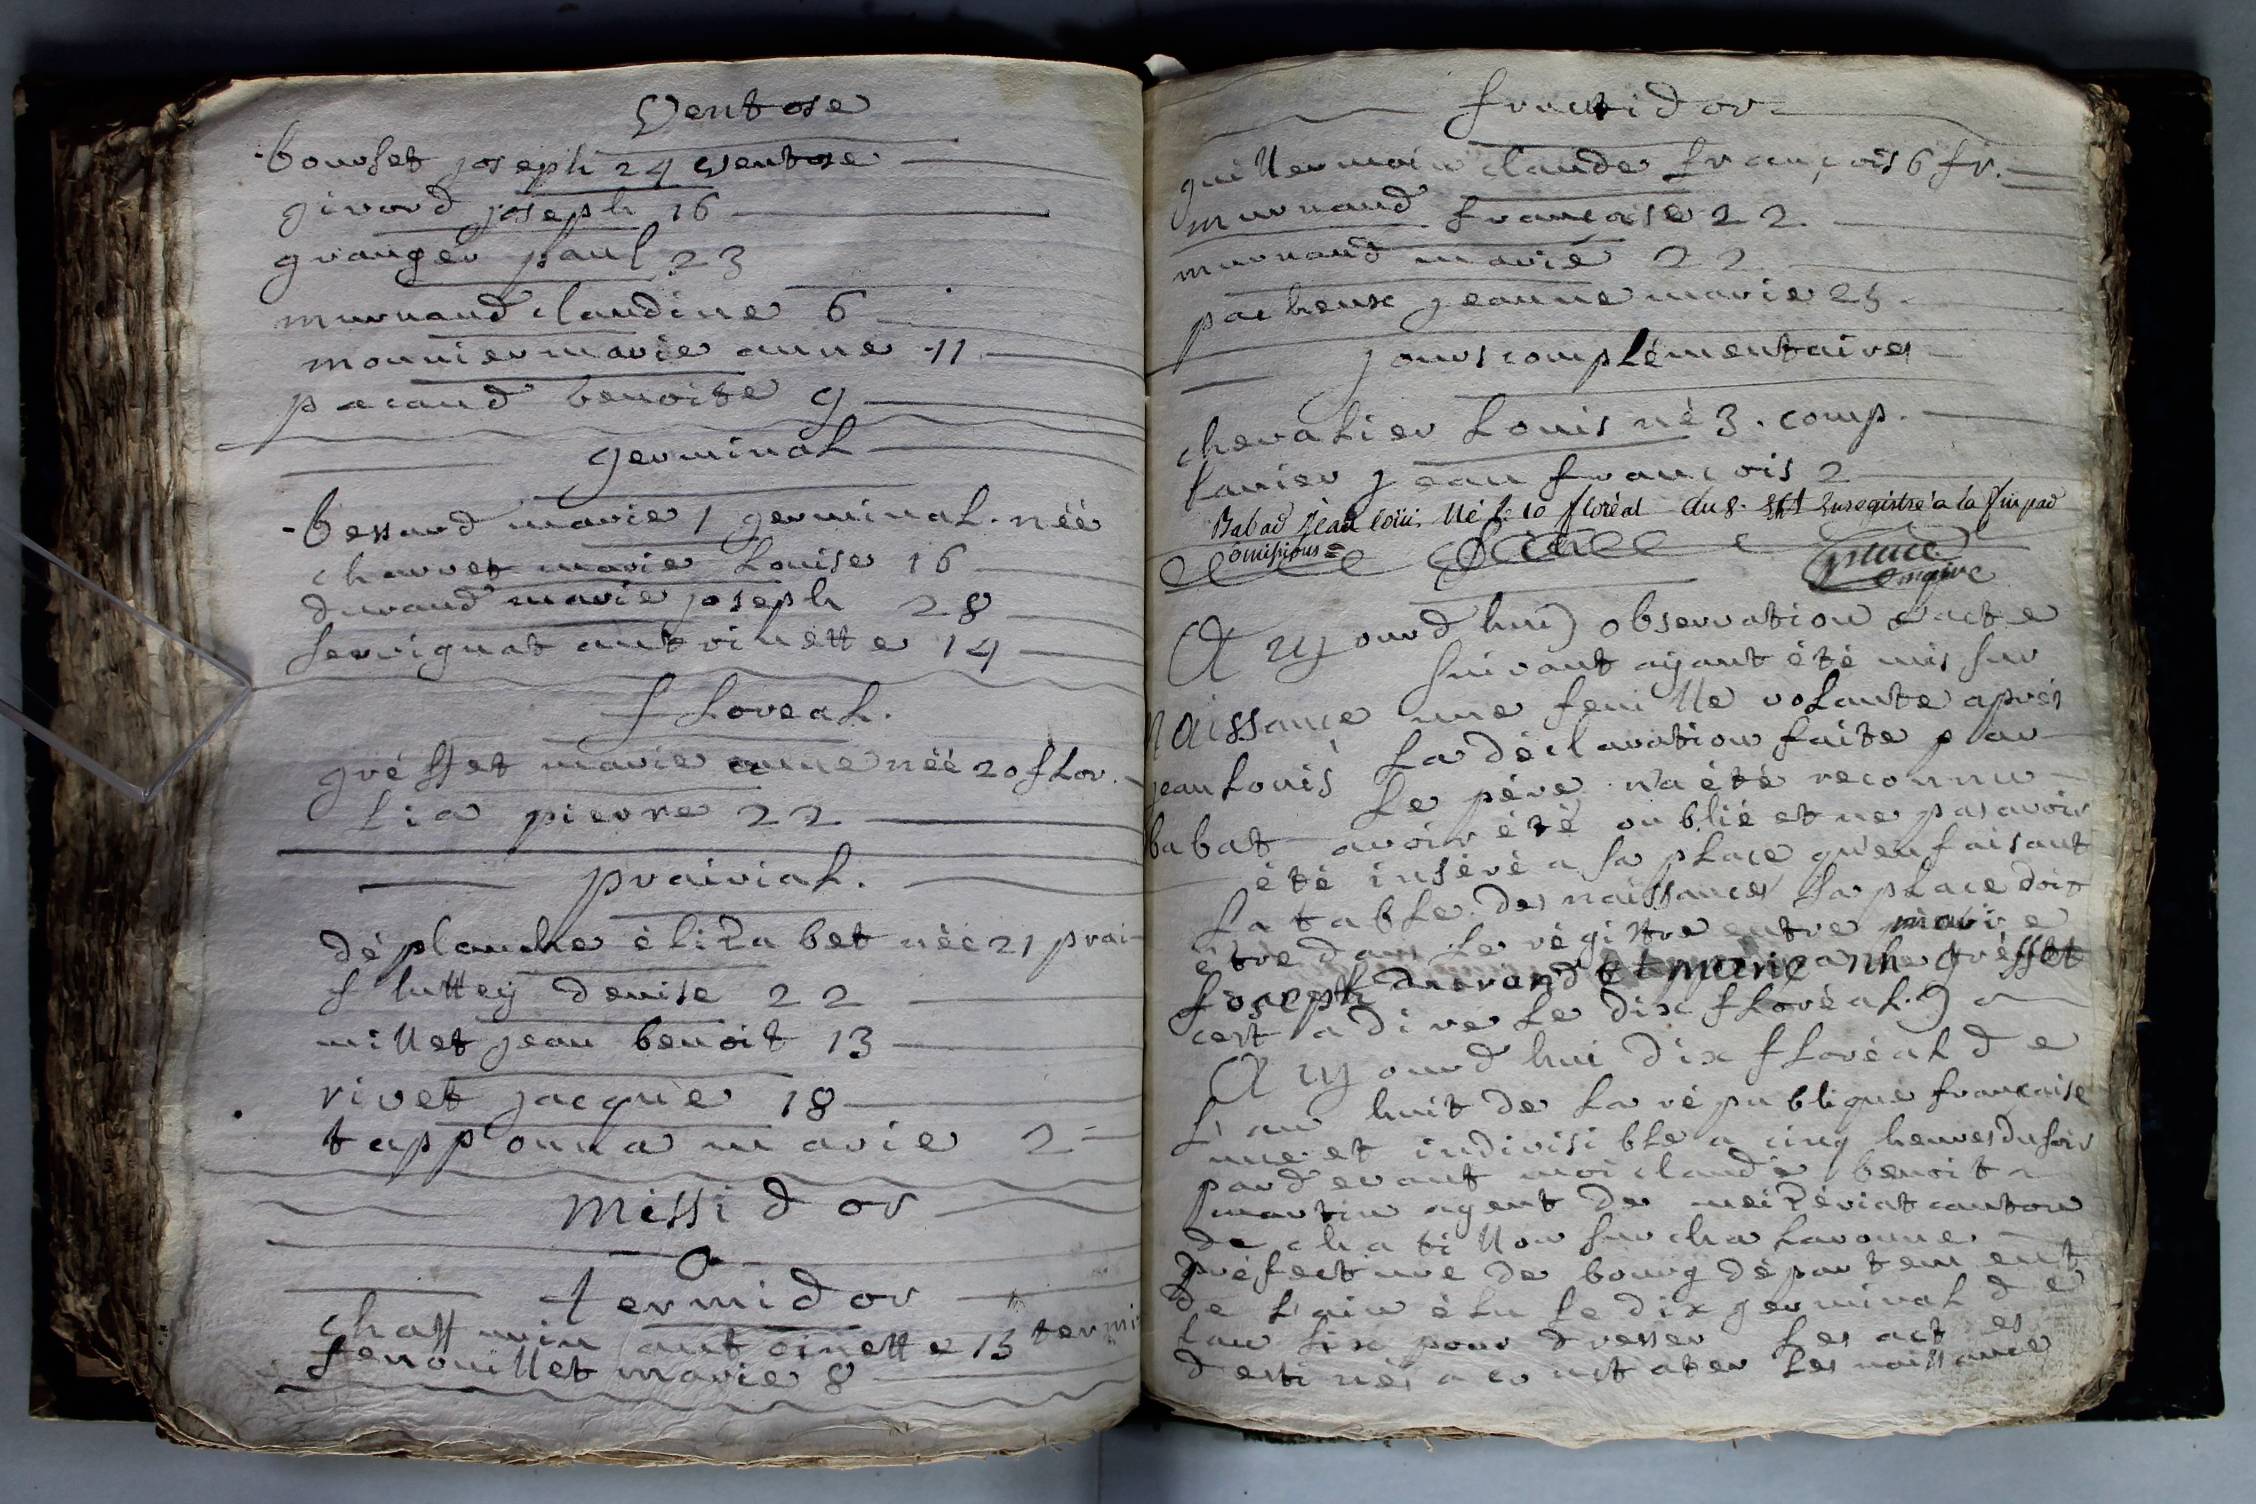 Ventose
bourset joseph 24 ventose
girord joseph 16
granger paul 23
murnaud claudine 6
monnier marie anne 11
pacaud benoite 9
germinal
bessard marie 1 germinal. néé
charvet marie louise 16
durand marie joseph 28
servignat antoinette 14
floreal.
grésset marie anne néé 20 flor.
lia pierre 22
prairial.
déplanche élizabet néé 21 prai
fluttey denise 22
millet jean benoit 13
rivet jacque 18
tapponna marie 2
missidor
0
termidor
antoinette 13 termi
fenouillet marie 8
fructidor
guillermain claude françois 6 fr.
murnaud françoise 22
murnaud marie 22
pacheux jeanne marie 25
jours complémentaires
chevalier louis né 3. comp.
lanier jean francois 2
Babad jean loüis Né le 10 floréal au 8. Enregistré a la fin pad
omissions
maire
Aujourdhui) observation lacte
suivant ayant été mis sur
naissance une feuille volante aprés
la déclaration faite par
jean louis le pére n'a été reconnu
babat avoir été oublié et ne pas avoir
été inséré a sa place qu'en faisant
la table des naissances sa place doit
être dans le régistre entre marie
joseph durand et marie grésset
cest a dire le dix floréal.)
Aujourdhui dix floréal de
l'an huit de la république française
une et indivisible a cinq heures du soir
pardevant moi claude benoit
martin agent de meizériat canton
de chatillon sur chalaronne
préfecture de bourg département
de l'ain élu le dix germinal de
lan six pour dresser les actes
destinés a constater les naissance